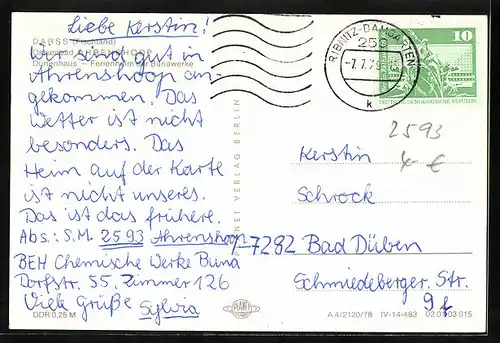 Liebe Kerstin!
DARSS (Fischland)
Ostseebad AHRENSHOOP
Dünenhaus — Ferienheim der Bunawerke
Wir sind gut in
Ahrenshoop an-
gekommen. Das
Wetter ist nicht
besonders. Das
Heim auf der Karte
ist nicht unseres.
Das ist das frühere.
Abs.: S.M. 2593 Ahrenshoop
BEH Chemische Werke Buna
Dorfstr. 55, Zimmer 126
Viele Grüße Sylvia
DDR 0,25 M
PLANET VERLAG BERLIN
PLANET
RIBNITZ-DAMGARTEN
259
k
10
DEUTSCHE DEMOKRATISCHE REPUBLIK
2593
€
Kerstin
Schrock
7282 Bad Düben
Schmiedeberger. Str.
9f
A 4/2120/78 IV-14-483 02 01 03 015